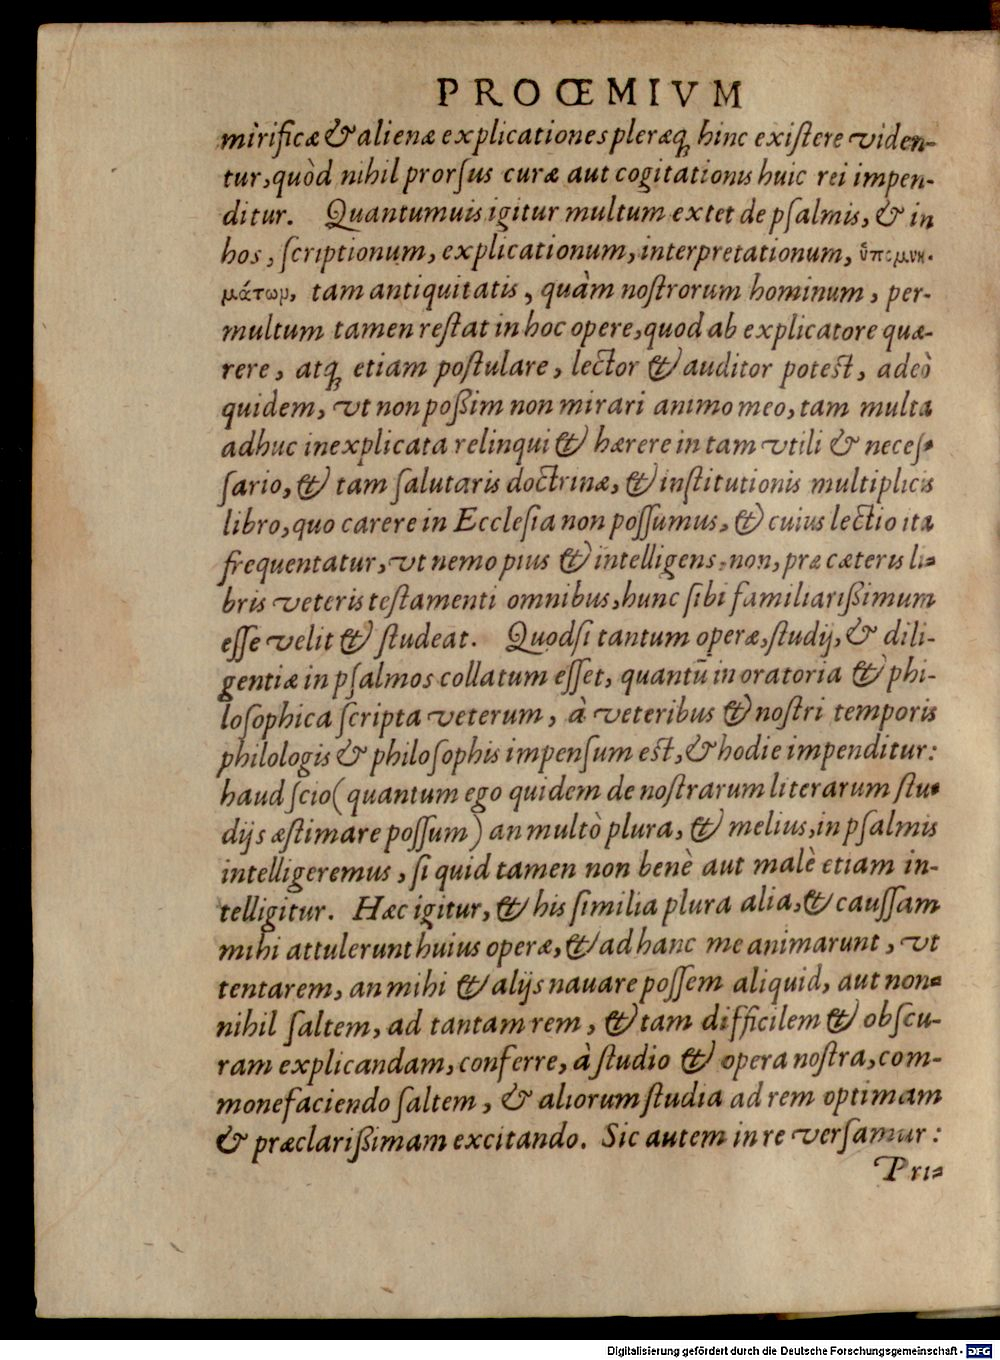 PROŒMIVM
mirificæ & alienæ explicationes pleræq; hinc existere viden-
tur, quòd nihil prorsus curæ aut cogitationis huic rei impen-
ditur. Quantumuis igitur multum extet de psalmis, & in
hos, scriptionum, explicationum, interpretationum, ὑπομνη-
μάτωμ, tam antiquitatis, quàm nostrorum hominum, per-
multum tamen restat in hoc opere, quod ab explicatore quæ-
rere, atq; etiam postulare, lector & auditor potest, adeò
quidem, vt non poßim non mirari animo meo, tam multa
adhuc inexplicata relinqui & hærere in tam vtili & neces-
sario, & tam salutaris doctrinæ, & institutionis multiplicis
libro, quo carere in Ecclesia non possumus, & cuius lectio ita
frequentatur, vt nemo pius & intelligens, non, præ cæteris li-
bris veteris testamenti omnibus, hunc sibi familiarißimum
esse velit & studeat. Quodsi tantum operæ, studij, & dili-
gentiæ in psalmos collatum esset, quantũ in oratoria & phi-
losophica scripta veterum, à veteribus & nostri temporis
philologis & philosophis impensum est, & hodie impenditur:
haud scio (quantum ego quidem de nostrarum literarum stu-
dijs æstimare possum) an multò plura, & melius, in psalmis
intelligeremus, si quid tamen non benè aut malè etiam in-
telligitur. Hæc igitur, & his similia plura alia, & caussam
mihi attulerunt huius operæ, & ad hanc me animarunt, vt
tentarem, an mihi & alijs nauare possem aliquid, aut non-
nihil saltem, ad tantam rem, & tam difficilem & obscu-
ram explicandam, conferre, à studio & opera nostra, com-
monefaciendo saltem, & aliorum studia ad rem optimam
& præclarißimam excitando. Sic autem in re versamur:
Pri-
Digitalisierung gefördert durch die Deutsche Forschungsgemeinschaft - DFG